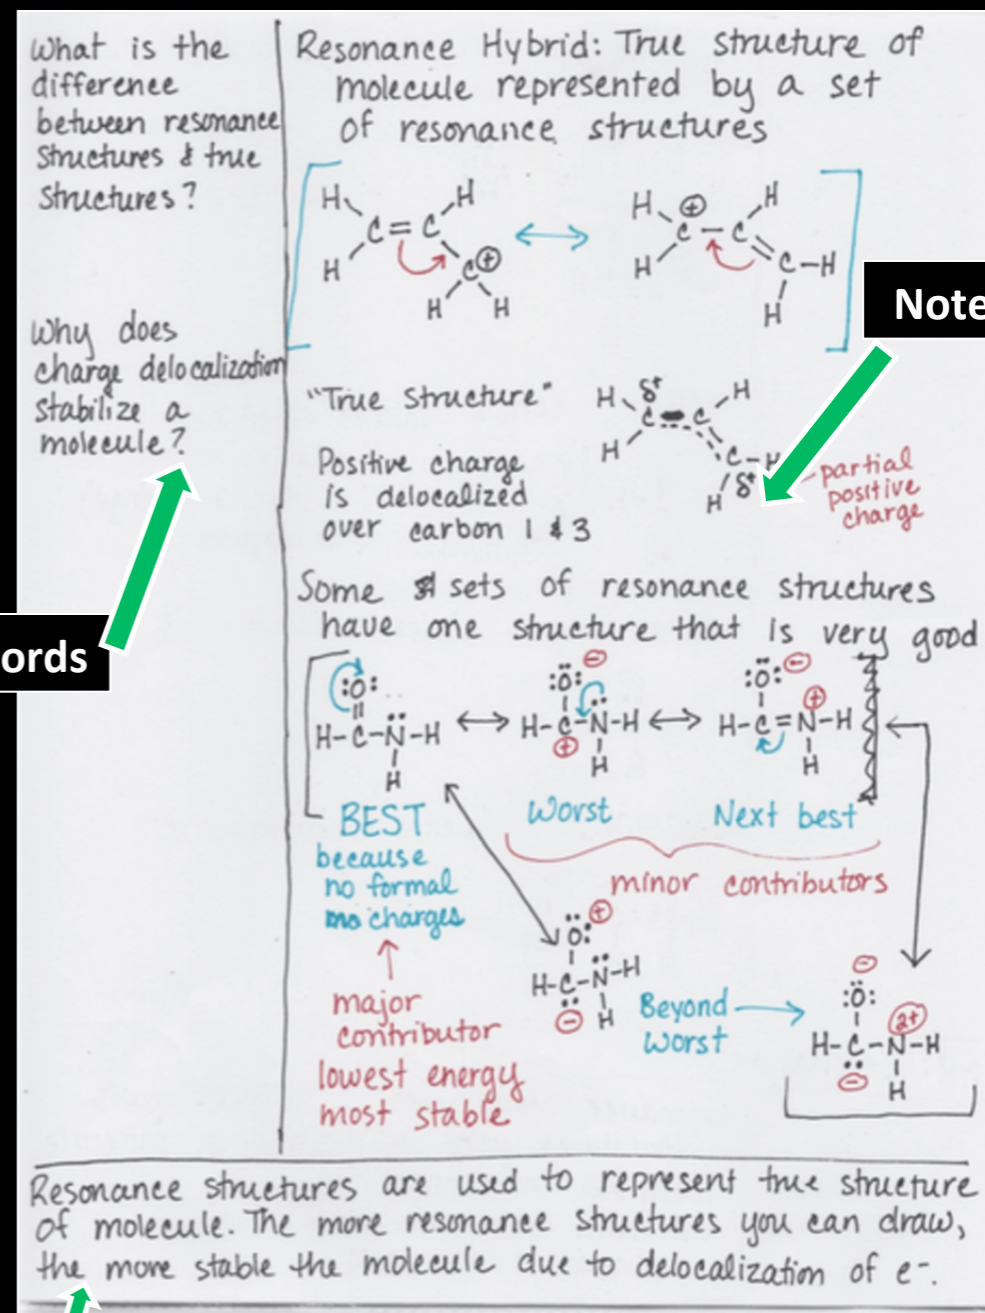 What is the
difference
between resonance
structures & true
structures?
Why does
charge delocalization
stabilize a
molecule?
ords
Resonance Hybrid: True structure of
molecule represented by a set
of resonance structures
H H H ⊕ H
C=C ↔ C-C
H C⊕ H C-H
H H H
Note
"True Structure"
H δ+ H
C C
H C-H
H δ+
Positive charge
is delocalized
over carbon 1 & 3
partial
positive
charge
Some sets of resonance structures
have one structure that is very good
:O: :Ö: ⊖ :Ö: ⊖
H-C-N̈-H ↔ H-C-N̈-H ↔ H-C=N-H
⊕ ⊕
H H H
BEST
because
no formal
charges
Worst
Next best
minor contributors
major
contributor
lowest energy
most stable
⊕
:O:
H-C-N̈-H
⊖ H
Beyond
worst
⊖
:Ö:
2+
H-C-N-H
⊖ H
Resonance structures are used to represent true structure
of molecule. The more resonance structures you can draw,
the more stable the molecule due to delocalization of e-.